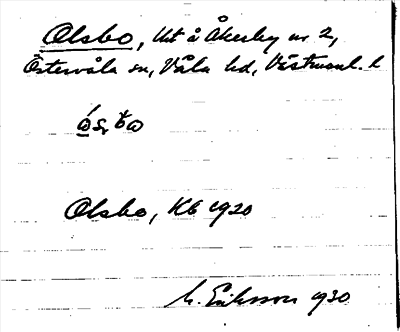 Olsbo, lht å Åkerby nr 2,
Östervåla sn, Våla hd, Västmanl. l
Olsbo, KB 1920
M. Eriksson 1930